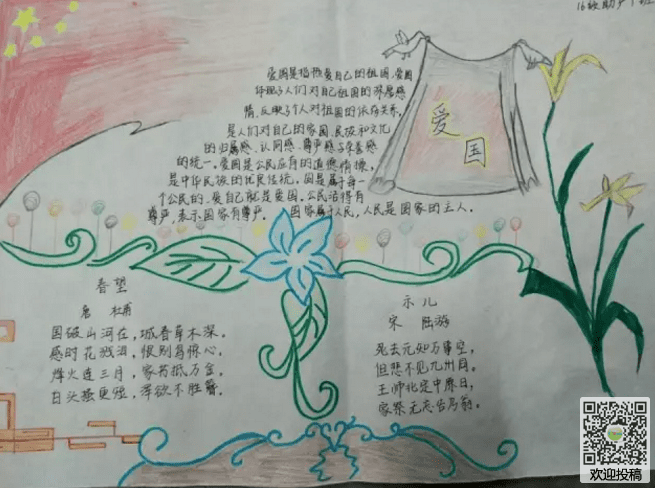 16级助产1班
爱国
爱国是指热爱自己的祖国,爱国
体现了人们对自己祖国的深厚感
情,反映了个人对祖国的依存关系,
是人们对自己的家园、民族和文化
的归属感、认同感、尊严感与荣誉感
的统一。爱国是公民应有的道德情操,
是中华民族的优良传统。国是属于每一
个公民的、爱自己就是爱国。公民活得有
尊严,表示国家有尊严。国家属于人民,人民是国家的主人。
春望
唐 杜甫
国破山河在,城春草木深。
感时花溅泪,恨别鸟惊心。
烽火连三月,家书抵万金。
白头搔更短,浑欲不胜簪。
示儿
宋 陆游
死去元知万事空,
但悲不见九州同。
王师北定中原日,
家祭无忘告乃翁。
欢迎投稿